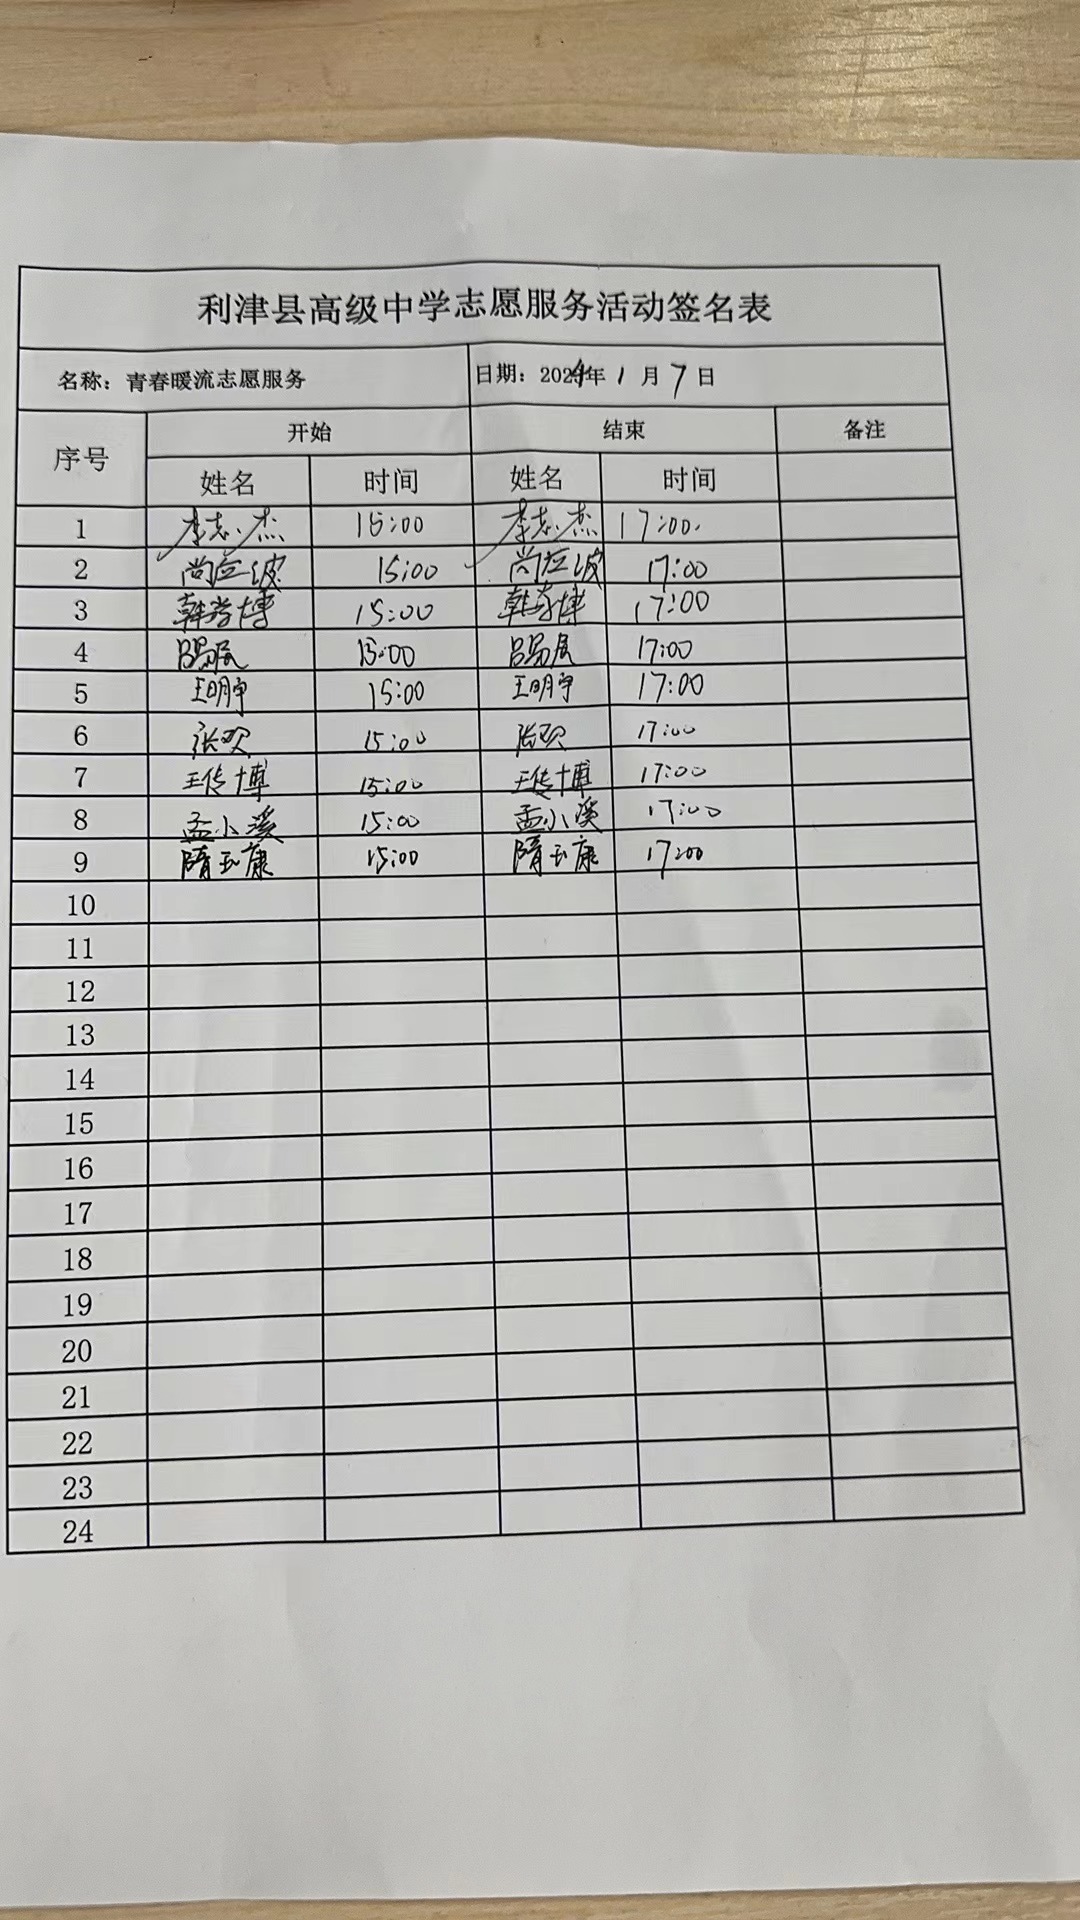 利津县高级中学志愿服务活动签名表
名称：青春暖流志愿服务 日期：2024年1月7日
序号 开始 结束 备注
姓名 时间 姓名 时间
1 李志杰 15:00 李志杰 17:00.
2 尚应波 15:00 尚应波 17:00
3 韩孝博 15:00 韩孝博 17:00
4 吕易展 15:00 吕易展 17:00
5 王明宇 15:00 王明宇 17:00
6 张欢 15:00 张欢 17:00
7 王传博 15:00 王传博 17:00
8 孟小溪 15:00 孟小溪 17:00
9 隋玉康 15:00 隋玉康 17:00
10
11
12
13
14
15
16
17
18
19
20
21
22
23
24